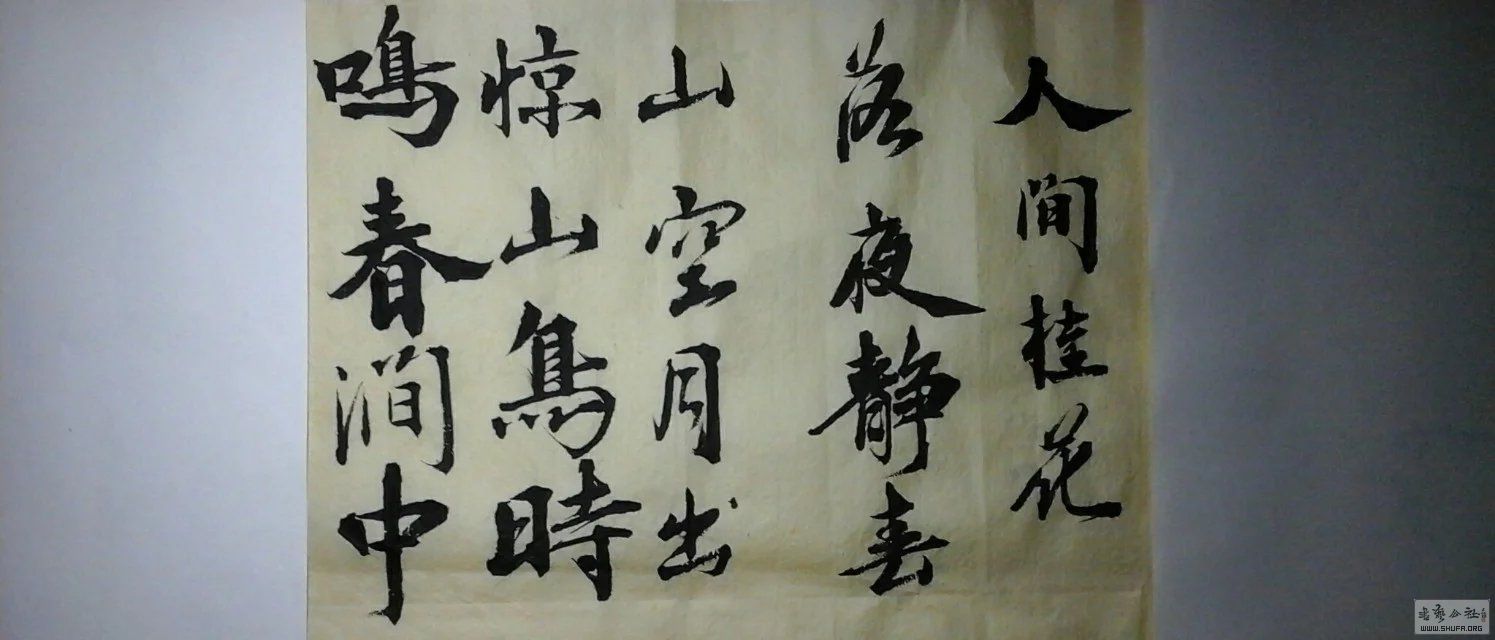 人间桂花
落夜静春
山空月出
惊山鳥時
鳴春涧中
WWW.SHUFA.ORG